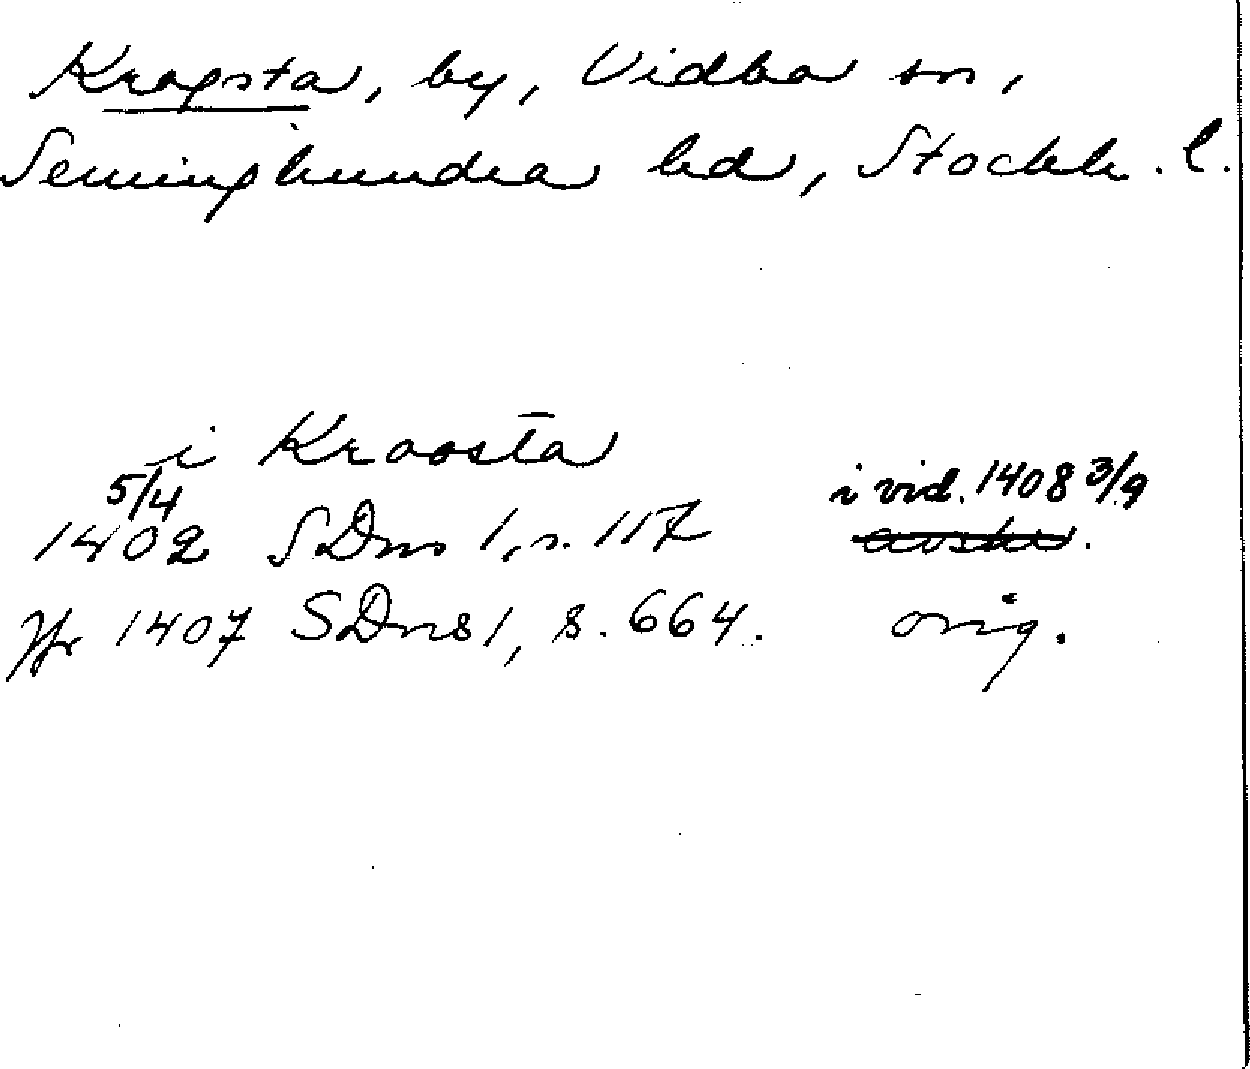 Kragsta, by, Vidbo sn,
Seminghundra hd, Stockh. l.
i Kraosta
5/4
1402 SDns 1, s. 117 i vid. 1408 3/9
avskr.
Jfr 1407 SDns 1, s. 664. orig.